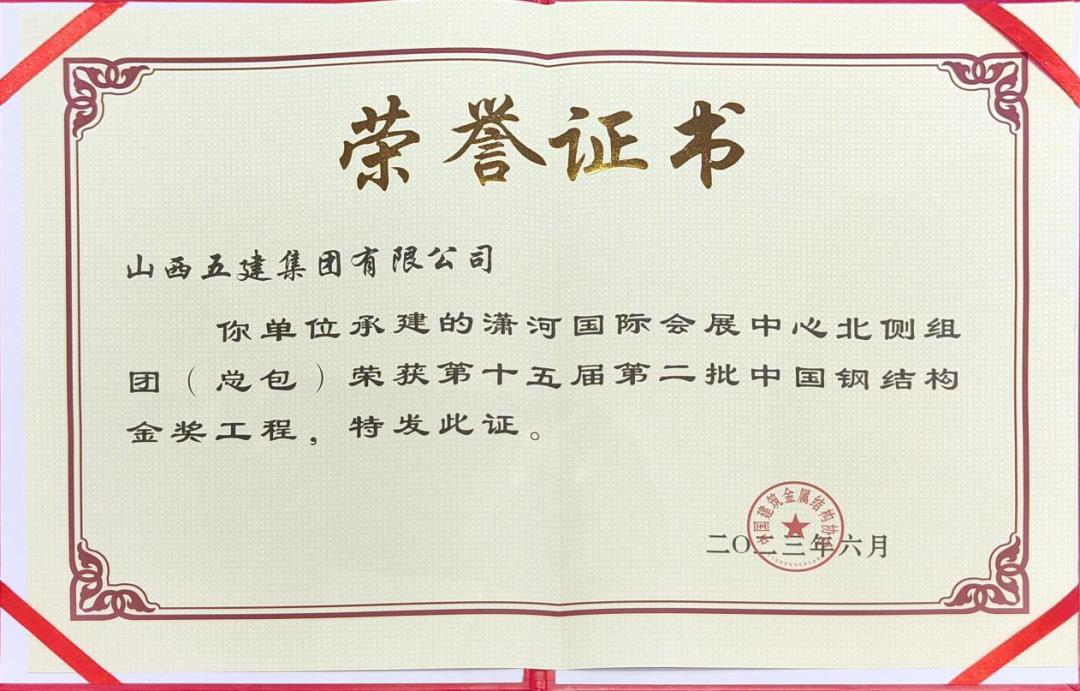 荣誉证书
山西五建集团有限公司
你单位承建的潇河国际会展中心北侧组
团（总包）荣获第十五届第二批中国钢结构
金奖工程，特发此证。
中国建筑金属结构协会
二〇二三年六月